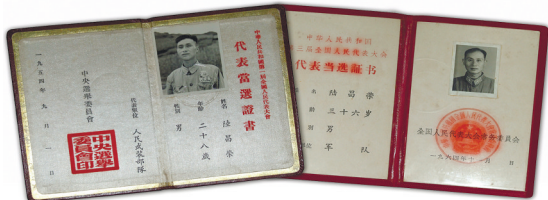 中華人民共和國第一屆全國人民代表大會
代表當選證書
姓名 陸昌榮
年齡 二十八歲
性別 男
代表單位 人民武裝部隊
中央選舉委員會
一九五四年九月一日
中央選舉
委員會印
中华人民共和国
第三届全国人民代表大会
代表当选证书
名 陆昌荣
三十六岁
别 男
军队
全国人民代表大会常务委员会
一九六四年十一月 日